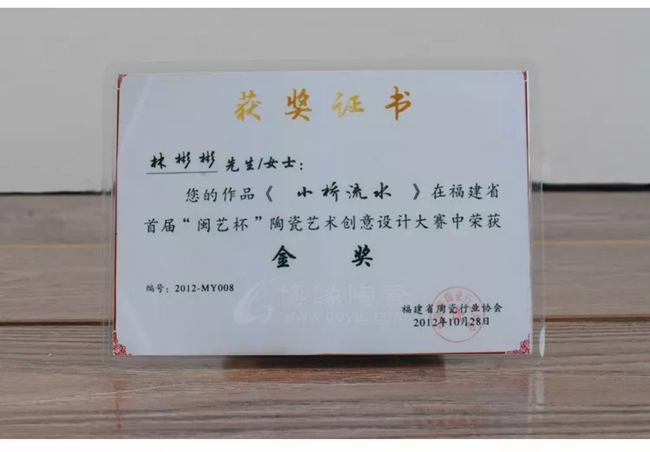 获奖证书
林彬彬 先生/女士：
您的作品《 小桥流水 》在福建省
首届“闽艺杯”陶瓷艺术创意设计大赛中荣获
金 奖
编号：2012-MY008
福建省陶瓷行业协会
2012年10月28日
博缘陶瓷